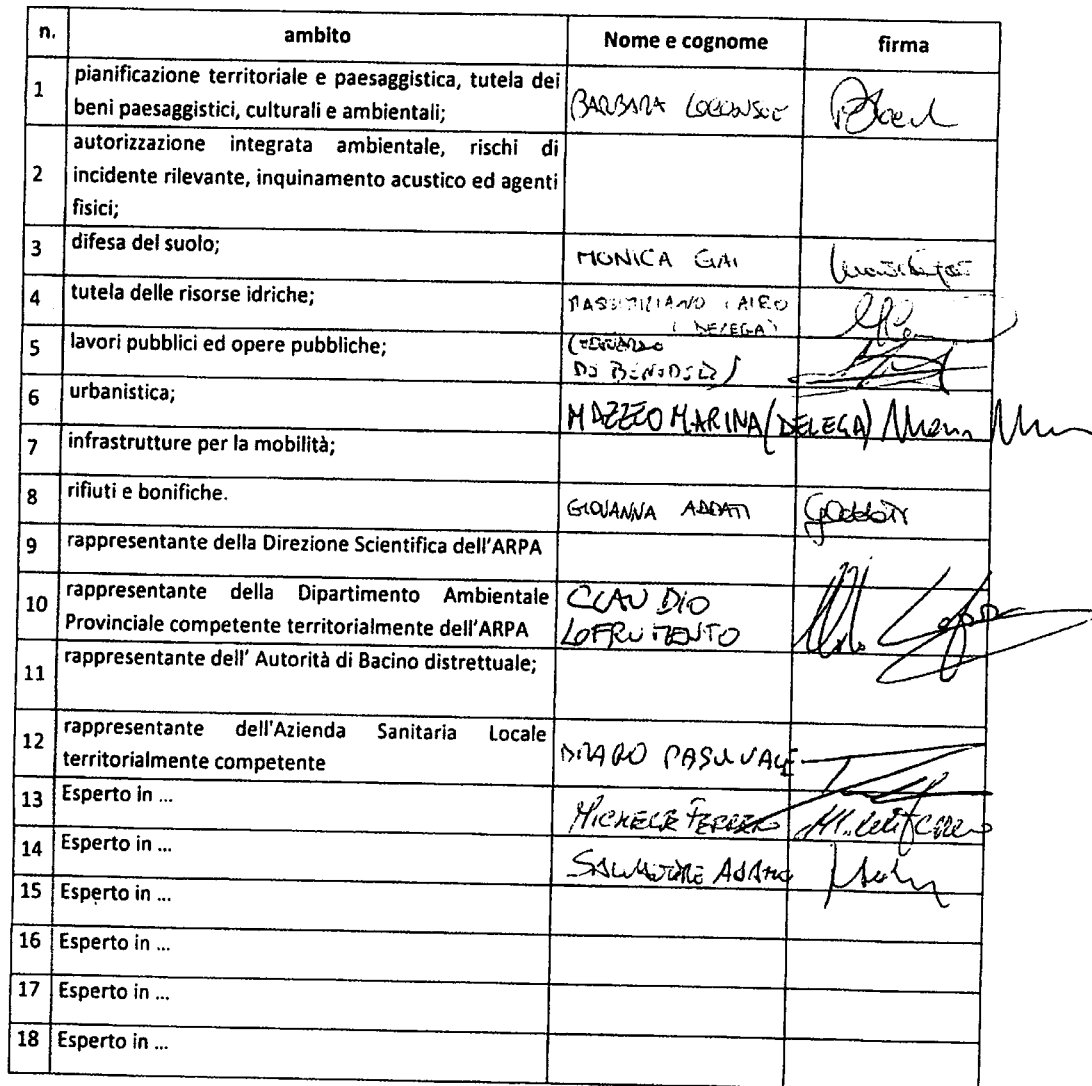 n. ambito Nome e cognome firma
1 pianificazione territoriale e paesaggistica, tutela dei
beni paesaggistici, culturali e ambientali; BARBARA LOCONSOLE
autorizzazione integrata ambientale, rischi di
2 incidente rilevante, inquinamento acustico ed agenti
fisici;
3 difesa del suolo; MONICA GAI
4 tutela delle risorse idriche; MASSIMILIANO CAIRO
(DELEGA)
5 lavori pubblici ed opere pubbliche;
6 urbanistica; MAZZEO MARINA (DELEGA)
7 infrastrutture per la mobilità;
8 rifiuti e bonifiche. GIOVANNA ADDATI
9 rappresentante della Direzione Scientifica dell'ARPA
10 rappresentante della Dipartimento Ambientale CLAUDIO
Provinciale competente territorialmente dell'ARPA LOFRUMENTO
11 rappresentante dell' Autorità di Bacino distrettuale;
12 rappresentante dell'Azienda Sanitaria Locale
territorialmente competente
13 Esperto in ... MICHELE
14 Esperto in ... SALVATORE ADAMO
15 Esperto in ...
16 Esperto in ...
17 Esperto in ...
18 Esperto in ...